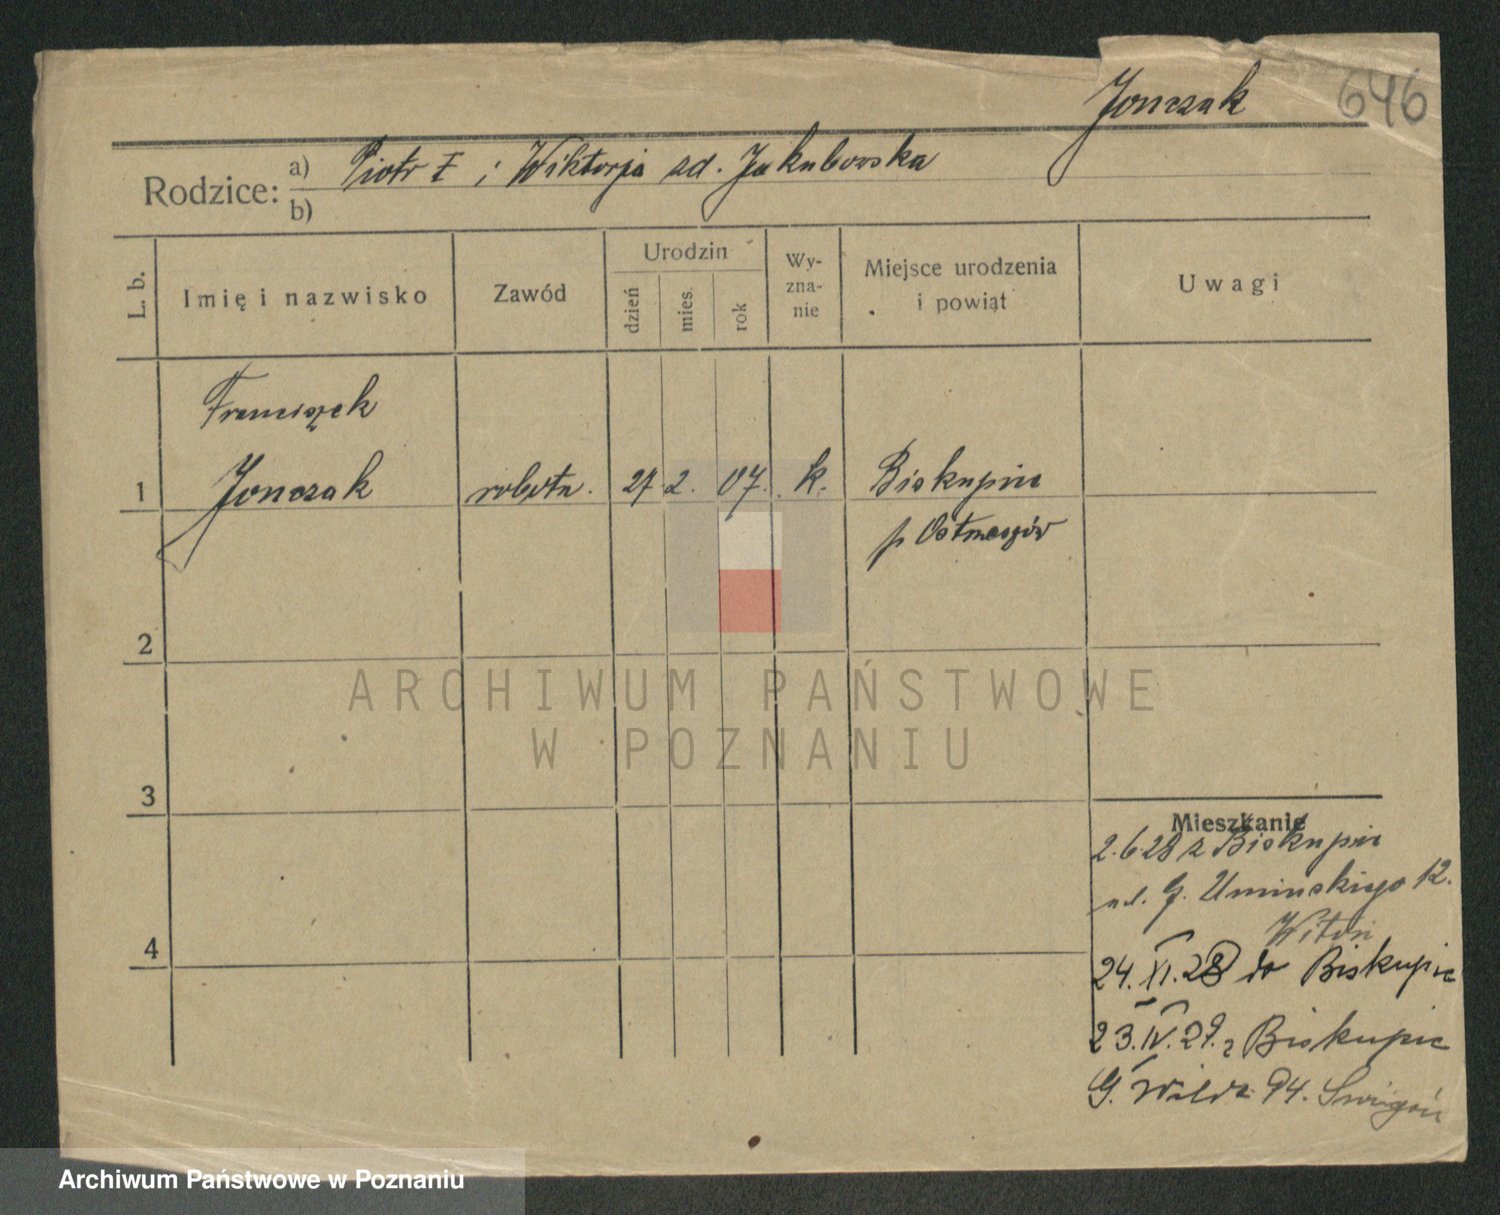 Jonczak 646
Rodzice: a) Piotr I i Wiktorja zd. Jakubowska
b)
L. b. Imię i nazwisko Zawód Urodzin dzień mies. rok Wy-zna-nie Miejsce urodzenia i powiąt Uwagi
Franciszek
1 Jonczak robotn. 27 2. 07. k. Biskupice
p Ostrzeszów
2
ARCHIWUM PAŃSTWOWE
W POZNANIU
3
Mieszkanie
2.6.28 z Biskupic
ul. G. Umińskiego 12.
24.XI.28 do Biskupic
23.IV.29. z Biskupic
G. Wilda 94.
4
Archiwum Państwowe w Poznaniu